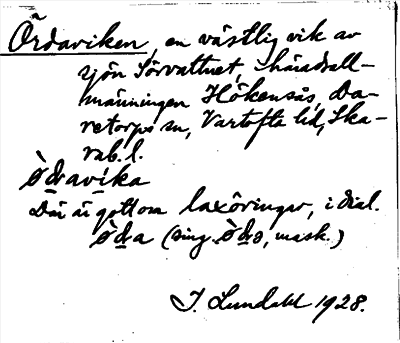 Ördaviken, en västlig vik av
sjön Sörvattnet, häradsall-
männingen Hökensås, Da-
retorps sn, Vartofta hd, Ska-
rab. l.
ò̀dravika
Där är gott om laxöringar, i dial.
öd̲a (sing. öd̲ə, mask.)
J. Lundahl 1928.